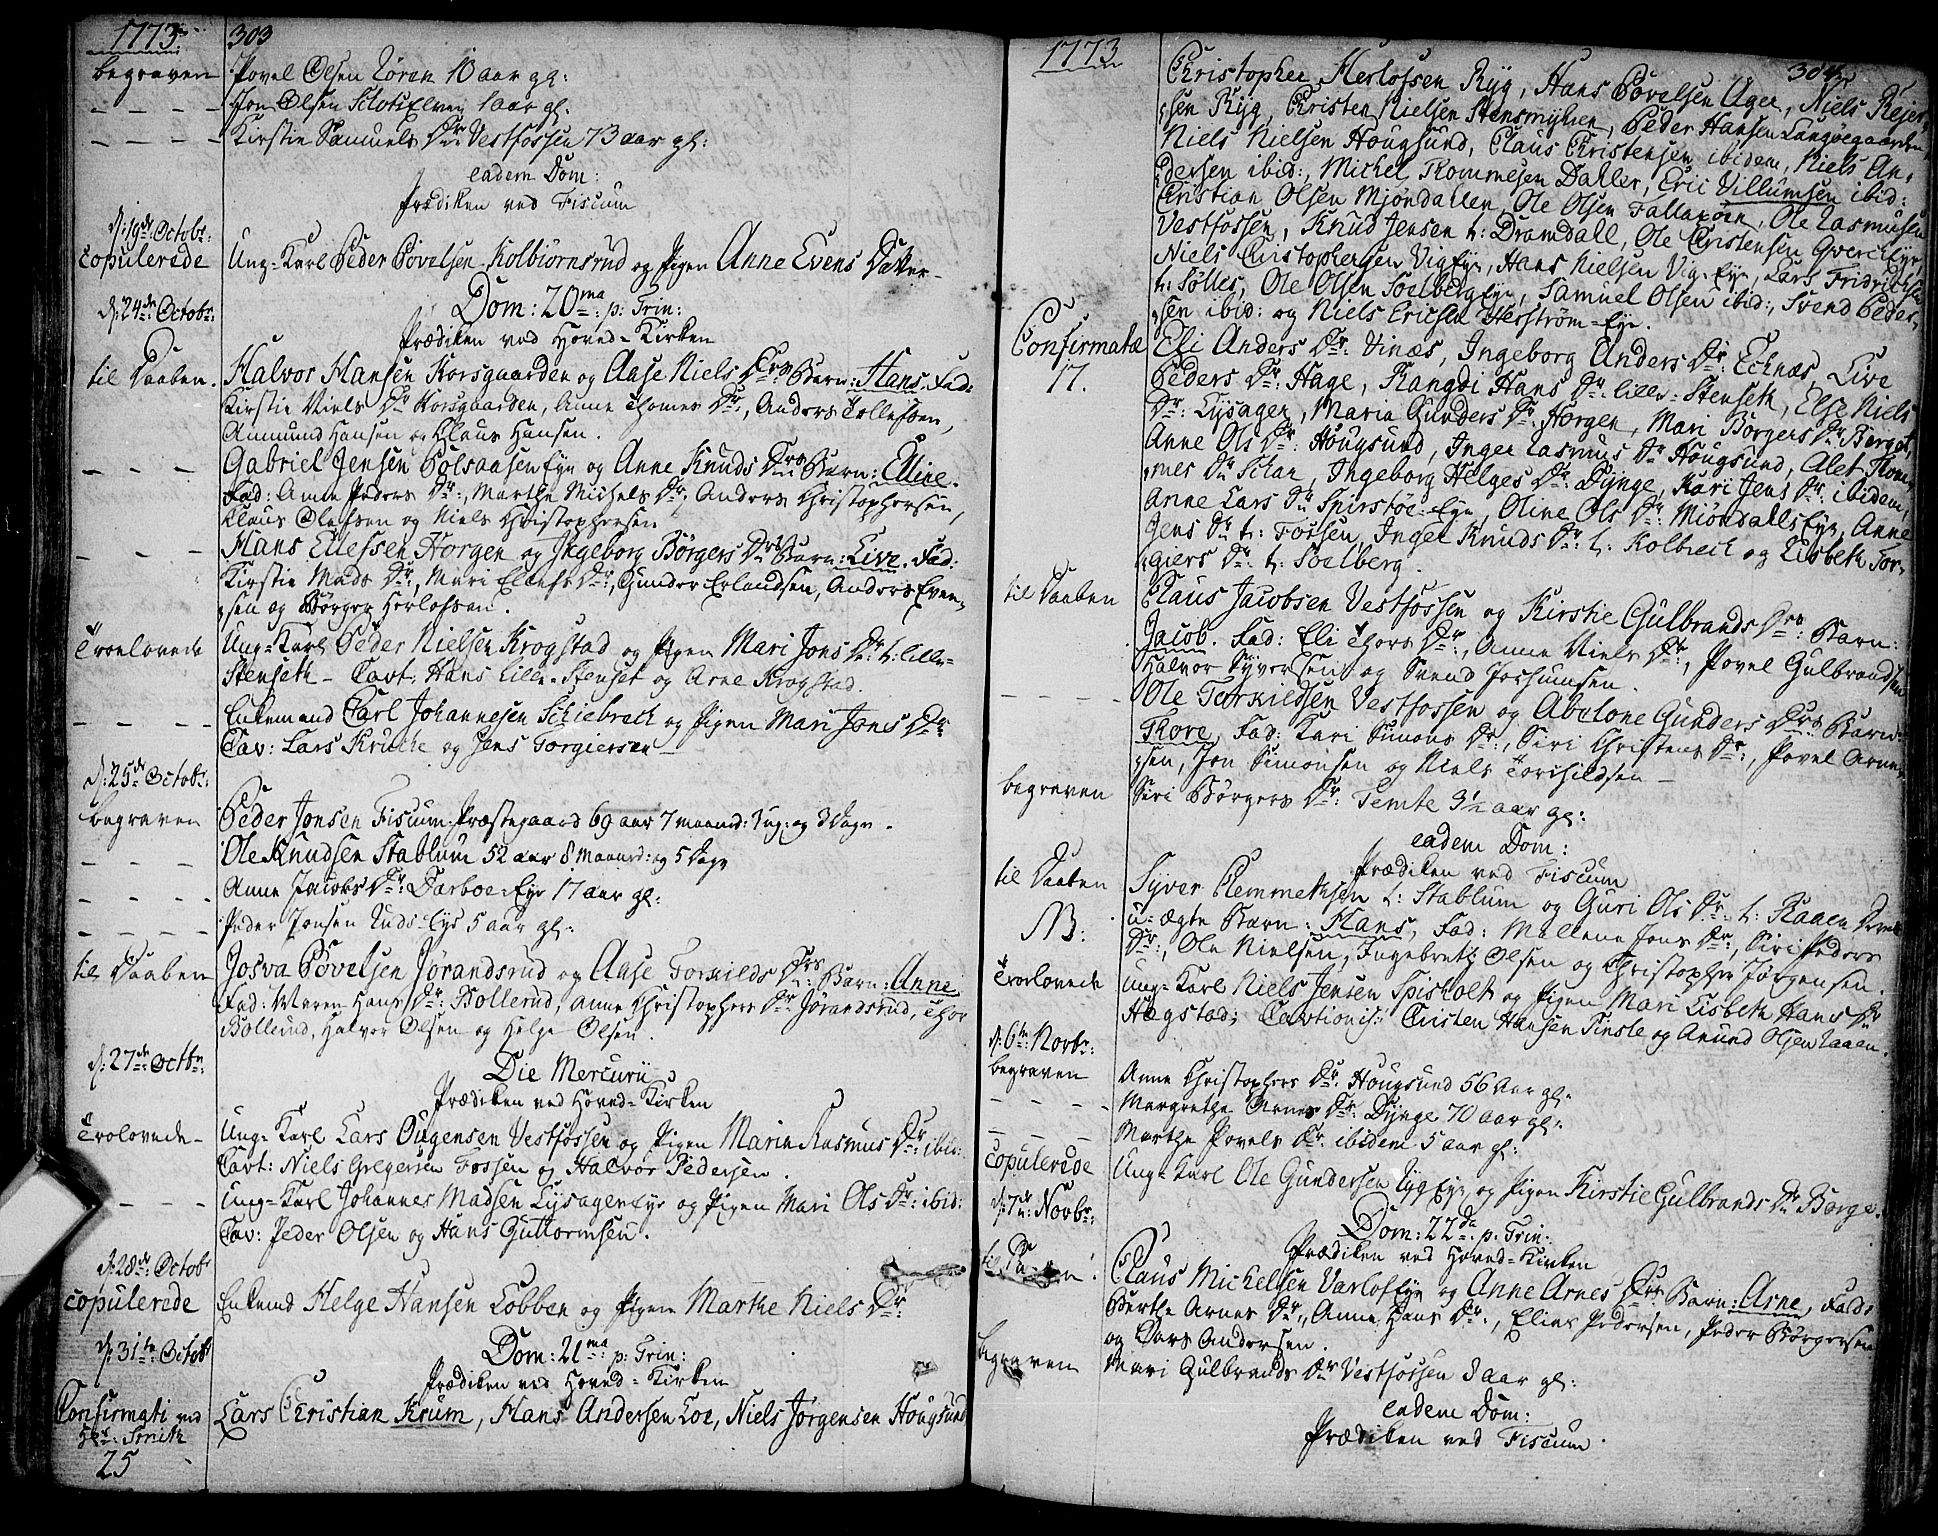 1773. 303
begraven Povel Olsen Loren 10 aar gl:
- - - Jon Olsen 1 aar gl.
- - - Kirstie Samuels Dr: Vestfossen 73 aar gl:
eadem Dom:
Prædiken ved Fiscum
d: 19de Octobr:
Copulerede Ung-Karl Peder Povelsen Kolbiørnsrud og Pigen Anne Evens Daker
d: 24de Octobr: Dom: 20ma p: Trin:
Prædiken ved Hoved-Kirken
til Daaben. Halvor Hansen Korsgaarden og Aase Niels Drs Barn: Hans. Fad:
Kirstie Niels Dr Korsgaarden, Anne Thomes Dr:, Anders Tollefsen,
Anmund Hansen og Claus Hansen.
- - - Gabriel Jensen Eye og Anne Knuds Drs Barn: Elline.
Fad: Anne Peders Dr:, Marthe Michels Dr: Anders Christophersen,
Klaus Olefsen og Niels Christophersen
- - - Hans Ellefsen Horgen og Ingeborg Børgers Drs Barn: Live. Fad:
Kirstie Mads Dr:, Mari Elles Dr:, Gunder Erlandsen, Anders Even-
sen og Børger Herlofsen.
Troelovede Ung-Karl Peder Nielsen Krogstad og Pigen Mari Jons Dr: t: lille-
Stenseth - Cavt: Hans Lille-Stenset og Arne Krogstad.
- - - Enkemand Carl Johannesen Schiebrech og Pigen Mari Jons Dr
Cav: Lars Kruche og Jens Torgiersen
d: 25de Octobr:
begraven Peder Jonsen Fiscum-Præstegaard 69 aar 7 maand: 3 ug: og 3 Dage.
- - - Ole Knudsen Stablum 52 aar 8 Maaned: og 5 Dage
- - - Anne Jacobs Dr: Darboe-Eye 17 aar gl:
- - - Peder Jonsen Eye 5 aar gl:
til Daaben Josva Povelsen Jørandsrud og Aase Torkilds Drs Barn: Anne
Fad: Maren Hans Dr: Bollerud, Anne Christophers Dr: Jørandsrud, Thor
Bollerud, Halvor Olsen og Helge Olsen.
d: 27de Octbr: Die Mercurii
Prædiken ved Hoved-Kirken
Trolovede - Ung-Karl Lars Ougensen Vestfossen og Pigen Marie Rasmus Dr: ibid:
Cavt: Niels Gregersen Fossen og Halvor Pedersen.
- - - Ung-Karl Johannes Madsen Lysager Eye og Pigen Mari Ols Dr: ibid:
Cav: Peder Olsen og Hans Guttormsen.
d: 28de Octobr
Copulerede Enkemd Helge Hansen Lobben og Pigen Marthe Niels Dr:
d: 31te Octobr Dom: 21ma p: Trin:
Prædiken ved Hoved-Kirken
Confirmati ved Lars Christian Krum, Hans Andersen Loe, Niels Jørgensen Hougsund
Hr: Smith
25
1773 304
Christopher Herlofsen Ryg, Hans Povelsen Ager, Niels Rejer-
sen Ryg, Christen Nielsen Stensmyhren, Peder Hansen Langøegaarden
Niels Nielsen Hougsund, Claus Christensen ibidem, Niels An-
dersen ibid:, Michel Thommesen Daller, Eric Villumsen ibid:
Cristian Olsen Mjøndallen, Ole Olsen Falla, Ole Rasmusen
Vestfossen, Knud Jensen t: Dramdall, Ole Christensen Eye,
Niels Christophersen Vig Eye, Hans Nielsen Vig-Eye, Lars Fridrichsen
t: Sølles, Ole Olsen Soelberg Eye, Samuel Olsen ibid:, Svend Peder-
sen ibid: og Niels Ericsen Herstrøm-Eye.
Confirmatæ Eli Anders Dr: Vinæs, Ingeborg Anders Dr: Echnæs, Live
17. Peders Dr: Hage, Rangdi Hans Dr: lille-Stenseth, Else Niels
Dr: Lysager, Maria Gunders Dr: Horgen, Mari Børgers Dr: Berget,
Anne Ols Dr: Hougsund, Inger Rasmus Dr Hougsund, Alet Thom-
mes Dr: Schar, Ingeborg Helges Dr: Dynge, Kari Jens Dr: ibidem,
Anne Lars Dr Spirstøe-Eye, Oline Ols Dr: Miøndalls Eye, Anne
Jens Dr t: Fossen, Inger Knuds Dr: t: Kolbrech og Lisbeth Tor-
giers Dr: t: Soelberg.
til Daaben Claus Jacobsen Vestfossen og Kirstie Gulbrands Drs: Barn:
Jacob. Fad: Eli Thors Dr:, Anne Niels Dr:, Povel Gulbrandsen
Halvor Syversen og Svend Joshuesen.
- - - Ole Torkildsen Vestfossen og Abelone Gunders Drs Barn:
Thore, Fad: Kari Simons Dr:, Siri Christens Dr:, Povel Arne-
sen, Jon Simonsen og Niels Torchildsen -
begraven Siri Børgers Dr: Temte 3½ aar gl:
eadem Dom:
Prædiken ved Fiscum
til Daaben Syver Clemmethsen t: Stablum og Guri Ols Dr: t: Raaen
NB: u-ægte Barn: Hans, Fad: Mallene Jens Dr:, Siri Peders
Dr:, Ole Nielsen, Ingebreth Olsen og Christopher Jørgensen.
Trolovede Ung-Karl Niels Jensen Spisholt og Pigen Mari Lisbeth Hans Dr
Hagstad; Cavtionist: Cristen Hansen Tinsle og Anund Olsen Raaen.
d: 6te: Novbr:
begraven Anne Christophers Dr: Hougsund 56 Aar gl:
- - - Margrethe Arnes Dr: Dynge 70 aar gl:
- - - Marthe Povels Dr: ibidem 5 aar gl:
Copulerede Ung-Karl Ole Gundersen Ryg Eye og Pigen Kirstie Gulbrands Dr Borge.
d: 7de: Novbr: Dom: 22da p: Trin:
Prædiken ved Hoved-Kirken
til Claus Michelsen Varlo Eye og Anne Arnes Drs Barn: Arne, Fad:
Berthe Arnes Dr:, Anne Hans Dr:, Elias Pedersen, Peder Børgersen
og Lars Andersen.
begraven Mari Gulbrands Dr Vestfossen 8 aar gl:
eadem Dom:
Prædiken ved Fiscum.